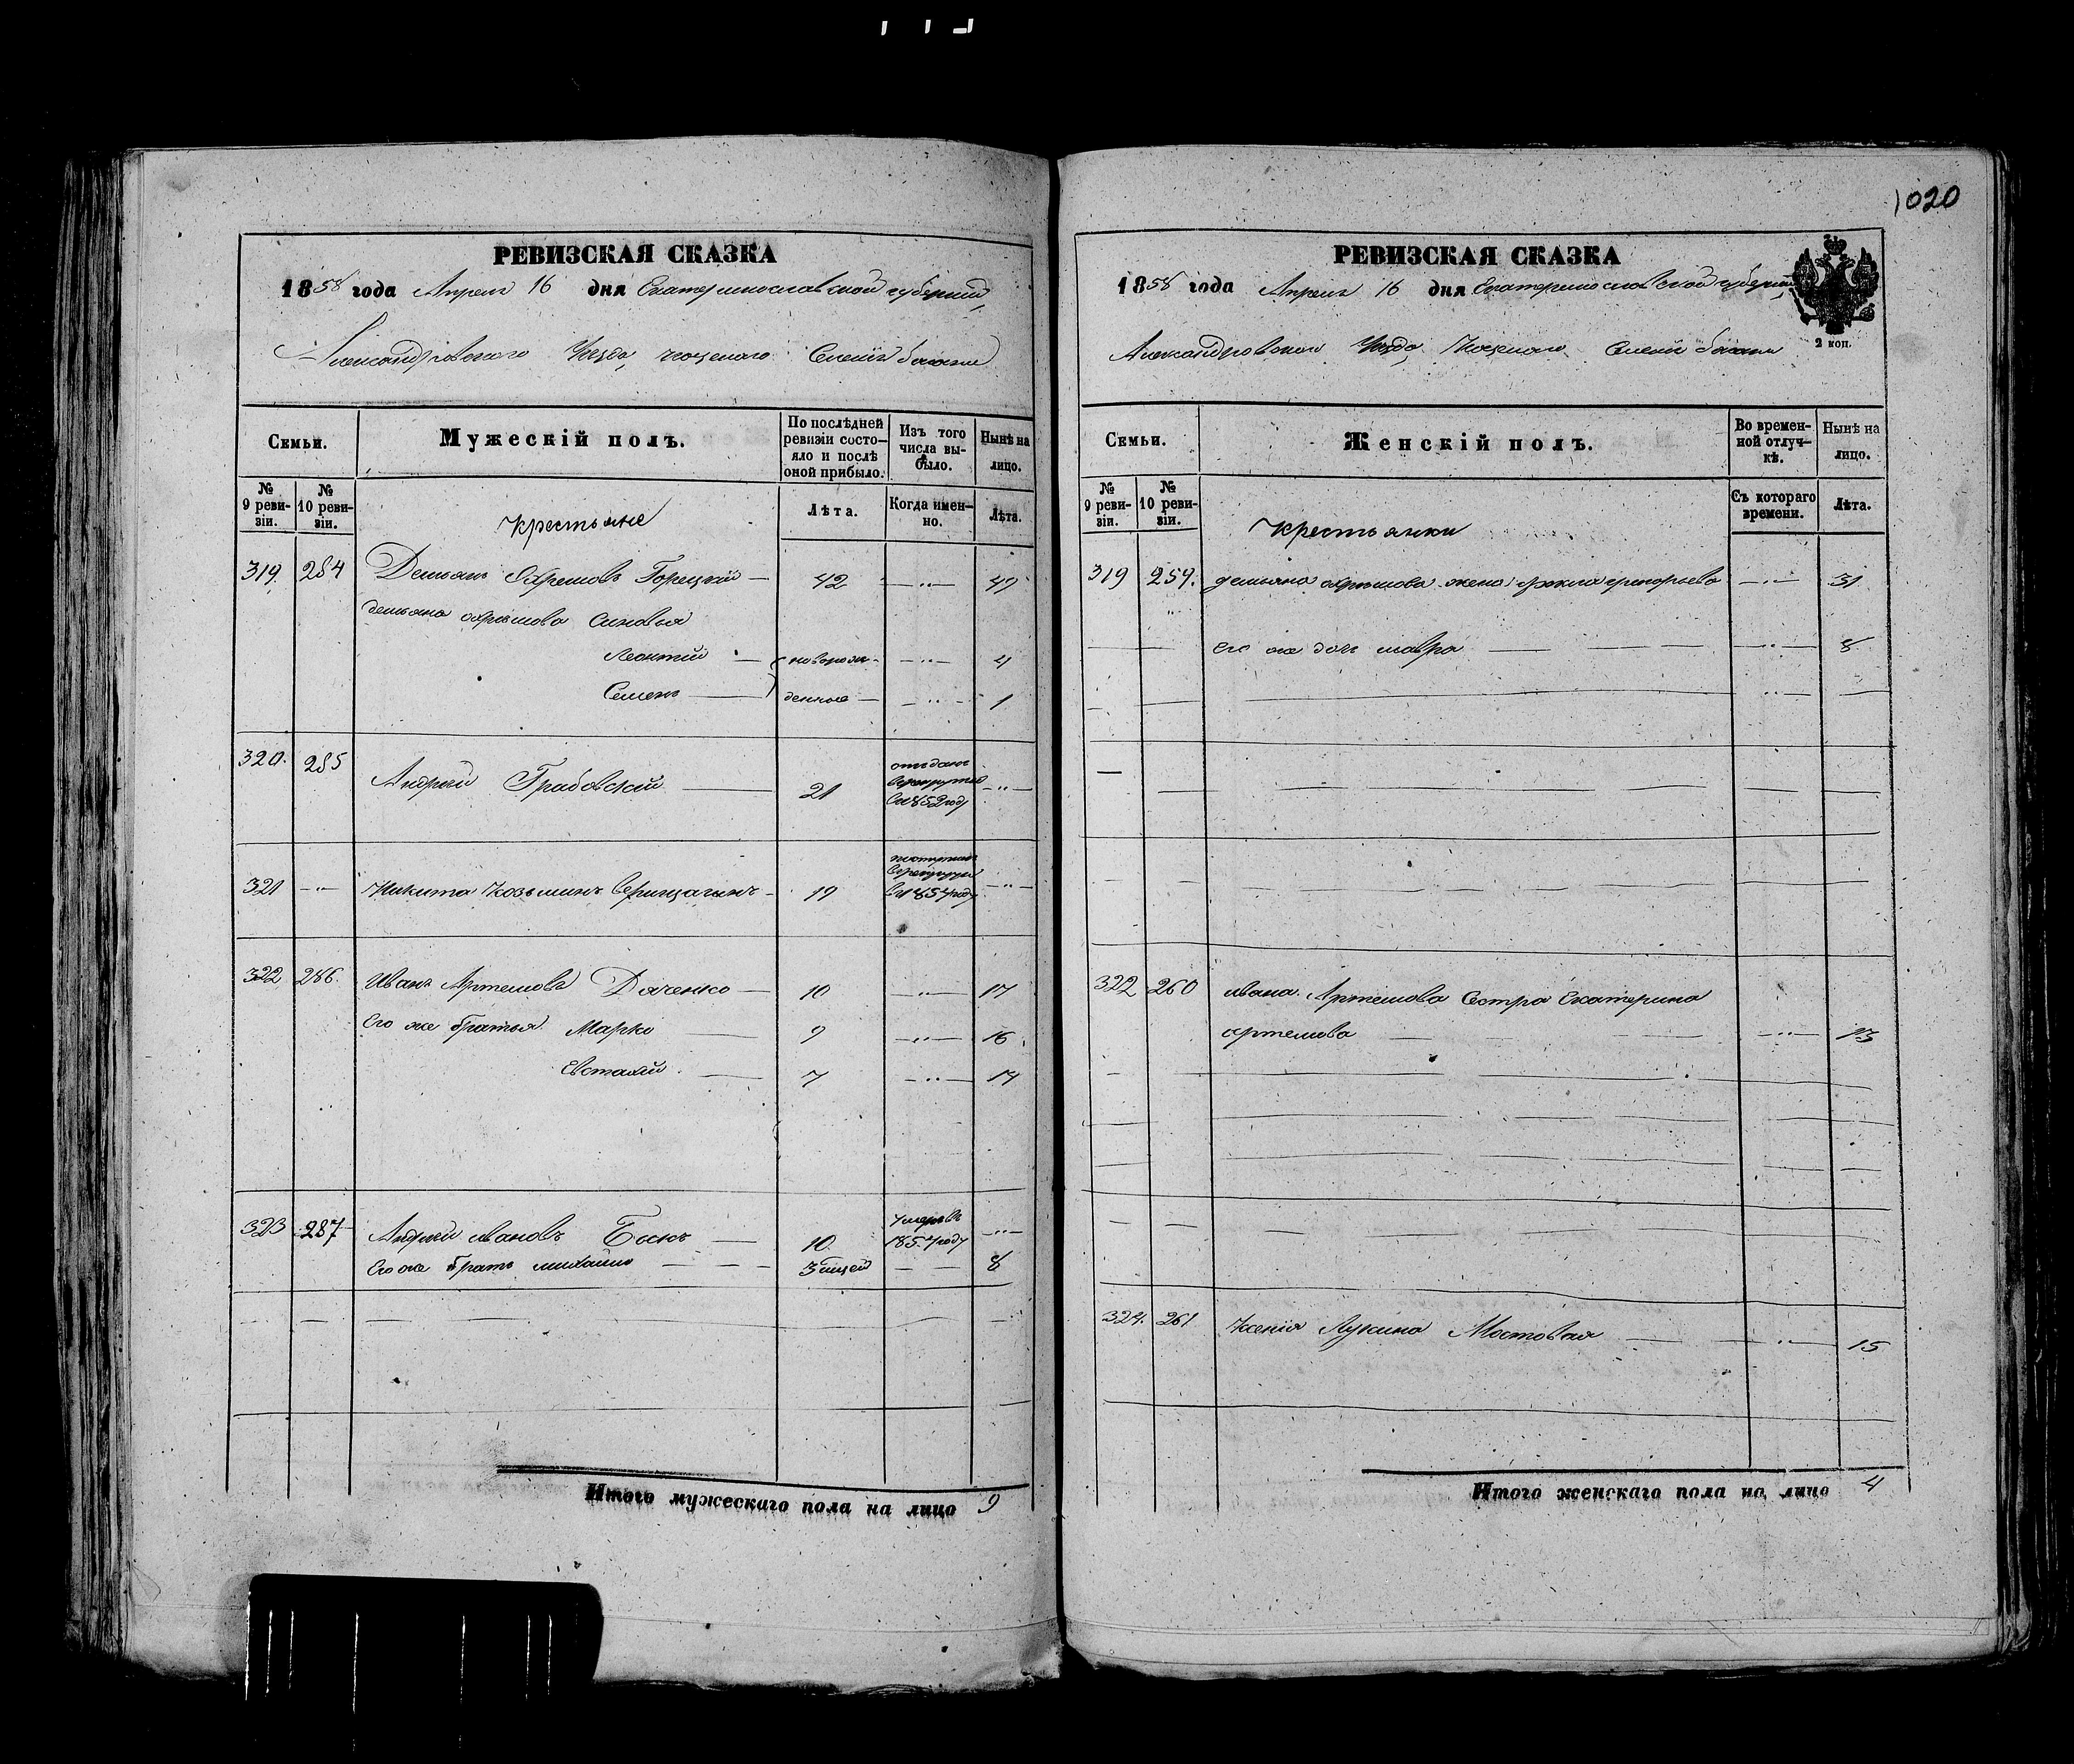 1020
РЕВИЗСКАЯ СКАЗКА
1858 года Апреля 16 дня Екатеринославской губернии,
Александровского Уезда,
Семьи.
Мужескій полъ.
По послѣдней ревизіи состо-яло и послѣ оной прибыло.
Изъ того числа вы-было.
Нынѣ на лицо.
№ 9 реви-зіи.
№ 10 реви-зіи.
Лѣта.
Когда имен-но.
Лѣта.
Крестьяне
319. 284 Демьянъ Ефремовъ Горецкий — 42 —"— 49
демьяна ефремова Синовья
Леонтий — новорож- —"— 4
Семенъ — денные — —"— 1
320. 285 Андрей Грабовский — 21 отъдан в рекруты в 1852 году —"—
321 —"— Никита Козьминъ — 19 в 1854 году —"—
322 286. Иванъ Артемовъ Дяченко — 10 —"— 17
Его же братья Марко — 9 —"— 16
Евстафий — 7 —"— 14
323 287 Андрей ивановъ — 10 умеръ в 1854 году —"—
Его же братъ михайло — — 8
Итого мужескаго пола на лицо 9
РЕВИЗСКАЯ СКАЗКА
1858 года Апреля 16 дня Екатеринославской губернии
Александровского Уезда
2 коп.
Семьи.
Женскій полъ.
Во времен-ной отлуч-кѣ.
Нынѣ на лицо.
№ 9 реви-зіи.
№ 10 реви-зіи.
Съ котораго времени.
Лѣта.
Крестьянки
319 259. демьяна ефремова жена григорьева —"— 31
его же доч мавра — —"— 8
322 260 ивана Артемова Сестра Екатерина
артемова —"— 13
324. 261 Мостовая — —"— 15
Итого женскаго пола на лицо 4